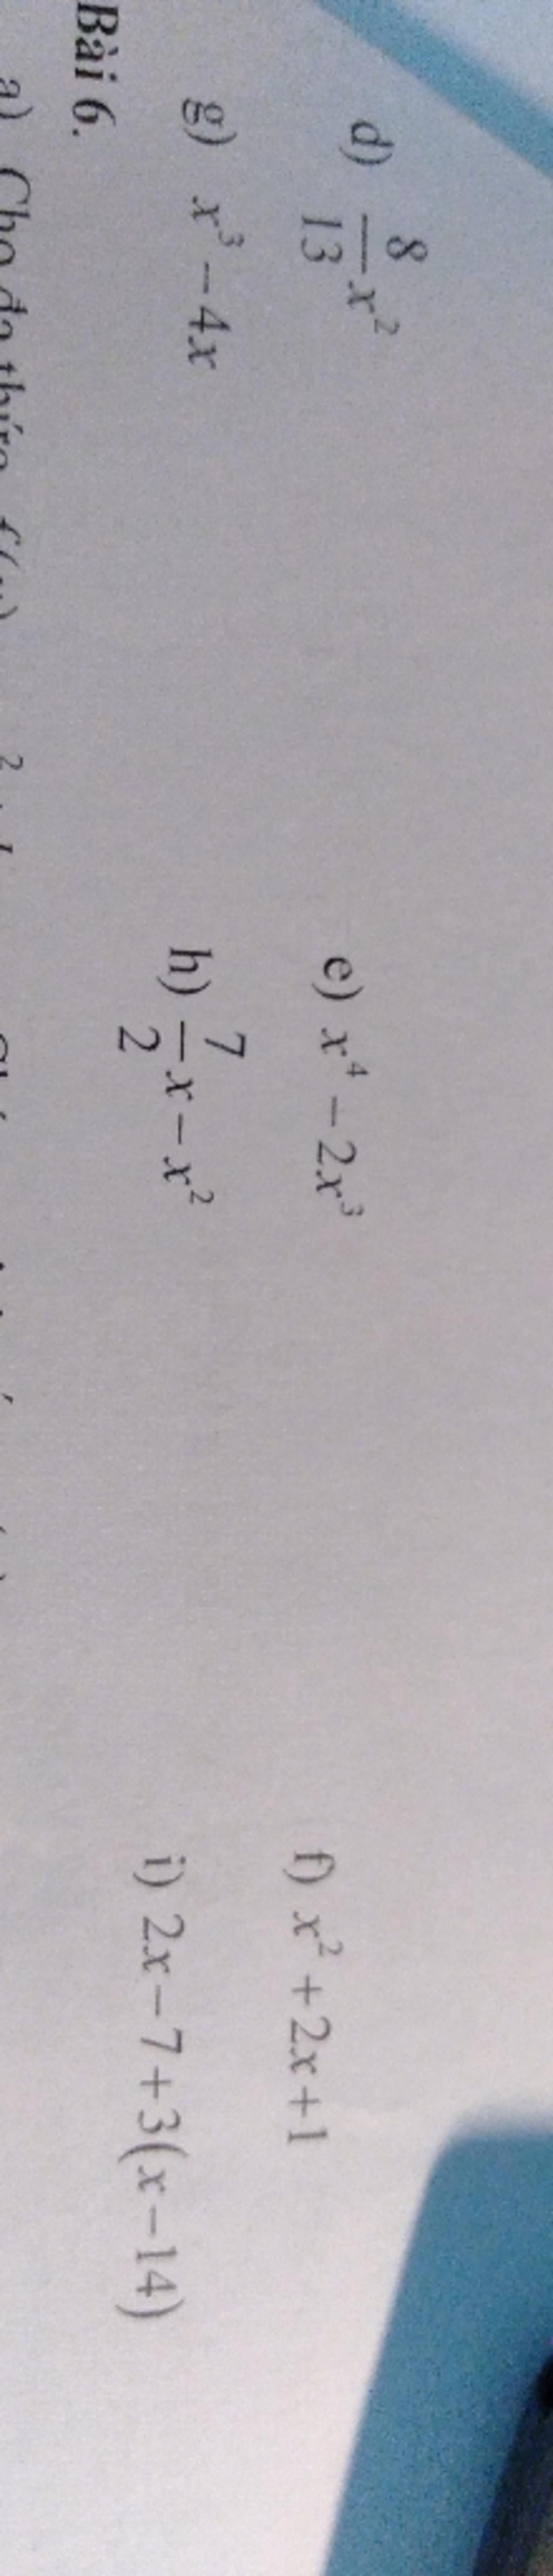 d) \frac{8}{13}x^2 e) x^4 - 2x^3 f) x^2 + 2x + 1
g) x^3 - 4x h) \frac{7}{2}x - x^2 i) 2x - 7 + 3(x - 14)
Bài 6.
a) Cho đa thức